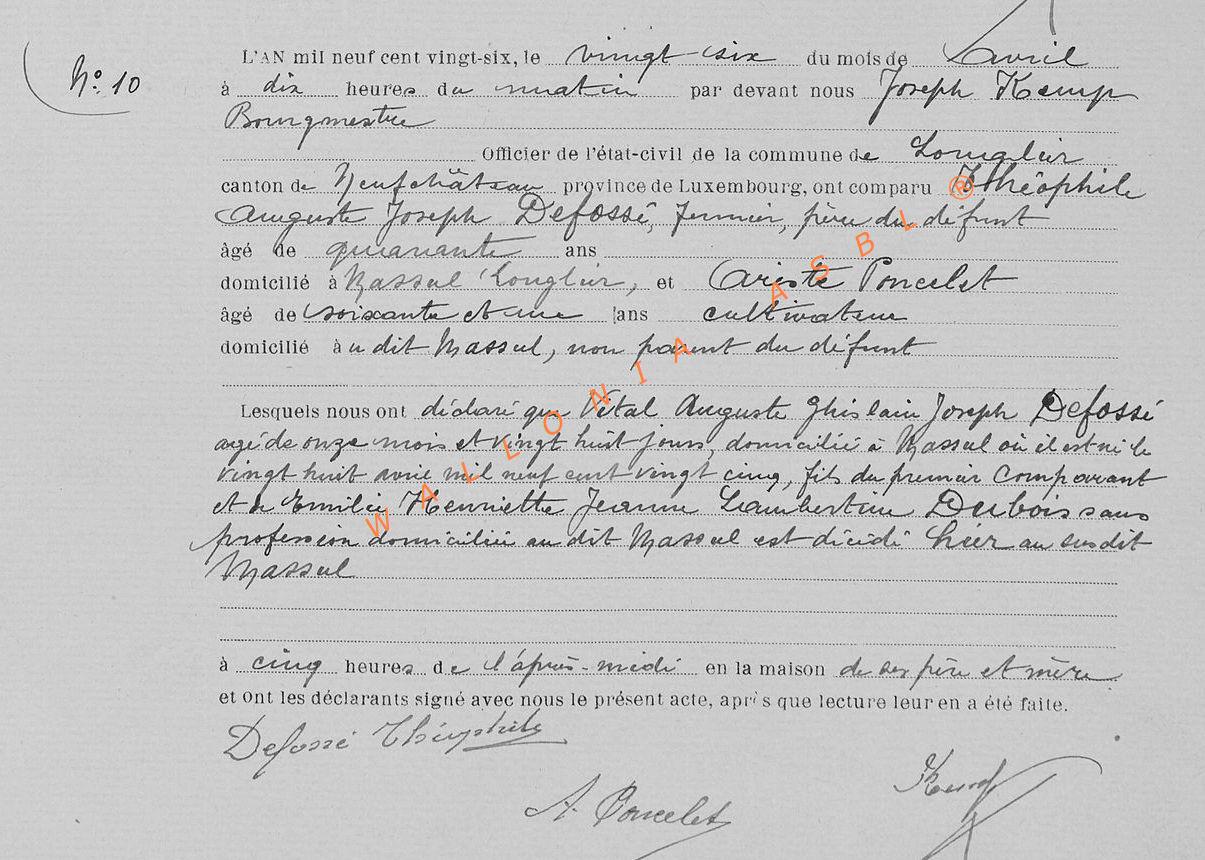 N° 10
L'AN mil neuf cent vingt-six, le vingt-six du mois de avril
à dix heures du matin par devant nous Joseph Kemp
Bourgmestre
Officier de l'état-civil de la commune de Longlier
canton de Neufchâteau province de Luxembourg, ont comparu Théophile
Auguste Joseph Defossé, fermier, père du défunt
âgé de quarante ans
domicilié à Massul Longlier, et Ariste Poncelet
âgé de soixante et une ans cultivateur
domicilié au dit Massul, non parent du défunt
Lesquels nous ont déclaré que Vital Auguste Ghislain Joseph Defossé
agé de onze mois et vingt huit jours, domicilié à Massul où il est né le
vingt huit avril mil neuf cent vingt cinq, fils du premier comparant
et de Emilie Henriette Jeanne Lambertine Dubois sans
profession domiciliée au dit Massul est décédé hier au susdit
Massul
à cinq heures de l'après-midi en la maison de ses père et mère
et ont les déclarants signé avec nous le présent acte, après que lecture leur en a été faite.
Defossé Théophile
A. Poncelet
Kemp
WALLONIA ASBL ®